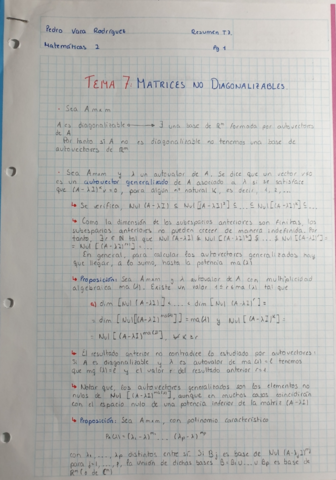 Pedro Vara Rodríguez
Resumen T7
Matemáticas 2
Pg 1
TEMA 7 MATRICES NO DIAGONALIZABLES
- Sea A m×m
A es diagonalizable ↔ ∃ una base de ℝᵐ formada por autovectores
de A.
Por tanto si A no es diagonalizable no tenemos una base de
autovectores de ℝᵐ
- Sea A m×m y λ un autovalor de A, se dice que un vector v≠0
es un autovector generalizado de A asociado a λ si se satisface
que (A-λI)ᵏv=0, para algún nº natural k, es decir, 1, 2, ...
↳ Se verifica, Nul (A-λI) ⊆ Nul [(A-λI)²] ⊆ ... ⊆ Nul [(A-λI)ᵏ] ⊆ ...
↳ Como la dimensión de los subespacios anteriores son finitas, los
subespacios anteriores no pueden crecer de manera indefinida. Por
tanto, ∃ r ∈ ℕ tal que Nul (A-λI) ⊊ Nul [(A-λI)²] ⊊ ... ⊊ Nul [(A-λI)ʳ] =
= Nul [(A-λI)ʳ⁺¹] = ...
En general, para calcular los autovectores generalizados hay
que llegar, a lo sumo, hasta la potencia ma(λ).
↳ Proposición: Sea A m×m y λ autovalor de A con multiplicidad
algebraica ma(λ). Existe un valor 1≤r≤ma(λ) tal que
dim [Nul (A-λI)] < ... < dim [Nul (A-λI)ʳ] =
= dim [Nul [(A-λI)ᵐᵃ⁽λ⁾]] = ma(λ) y Nul [(A-λI)ᵏ] =
↳ El resultado anterior no contradice lo estudiado por autovectores:
si A es diagonalizable y λ es autovalor de ma(λ)=1 tenemos
que mg(λ)=1 y el valor r del resultado anterior r=1
↳ Notar que, los autovectores generalizados son los elementos no
nulos de Nul [(A-λI)ᵐᵃ⁽λ⁾], aunque en muchos casos coincidirá
con el espacio nulo de una potencia inferior de la matriz (A-λI)
↳ Proposición: Sea A m×m, con polinomio característico
con λ₁, ..., λₚ distintos entre sí. Si Bⱼ es base de
para j=1, ..., p, la unión de dichas bases B=B₁∪...∪Bₚ es base de
ℝᵐ (o de ℂᵐ)